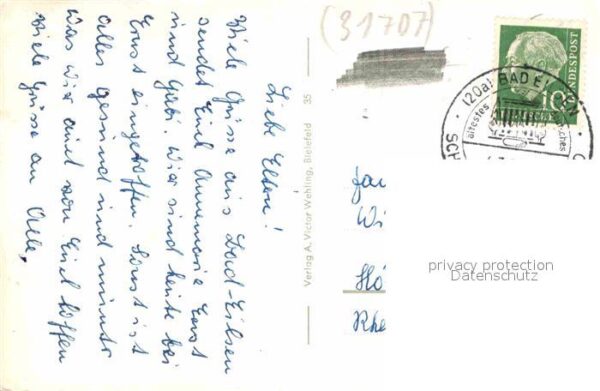 (31707)
Liebe Eltern!
Viele Grüsse aus Bad-Eilsen
sendet Euch Annemarie Ernst
und Gabi. Wir sind heute bei
Ernst eingetroffen. Sonst ist
alles gesund und munter
was wir auch von Euch hoffen
Viele Grüsse an Alle,
Verlag A. Victor Wehling, Bielefeld 35
DEUTSCHE BUNDESPOST
10
(20a) BAD E
ältestes
Wi
Hö
Rhe
privacy protection
Datenschutz